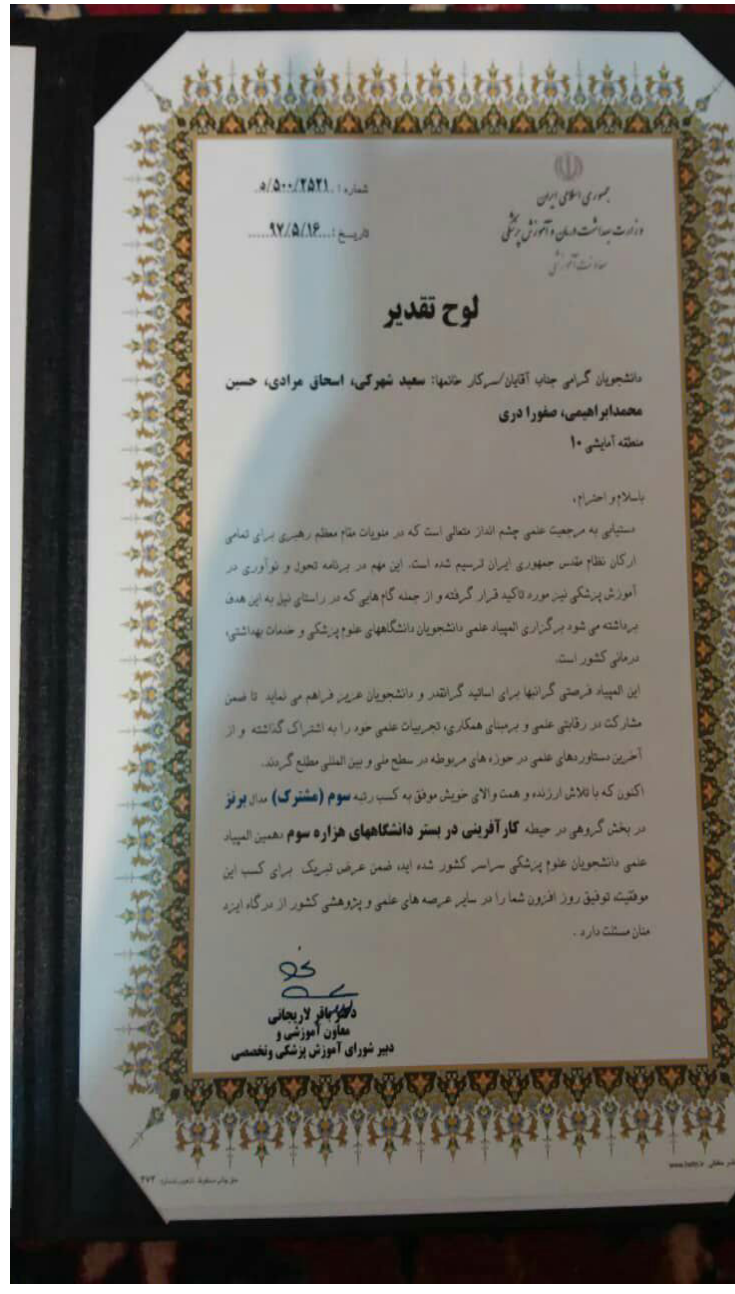 جمهوری اسلامی ایران
وزارت بهداشت درمان و آموزش پزشکی
معاونت آموزشی
شماره: ۵/۵۰۰/۲۵۲۱
تاریخ: ۹۷/۵/۱۶
لوح تقدیر
دانشجویان گرامی جناب آقایان/سرکار خانمها: سعید شهرکی، اسحاق مرادی، حسین
محمدابراهیمی، صفورا دری
منطقه آمایشی ۱۰
باسلام و احترام،
دستیابی به مرجعیت علمی چشم انداز متعالی است که در منویات مقام معظم رهبری برای تمامی
ارکان نظام مقدس جمهوری ایران ترسیم شده است. این مهم در برنامه تحول و نوآوری در
آموزش پزشکی نیز مورد تاکید قرار گرفته و از جمله گام هایی که در راستای نیل به این هدف
برداشته می شود برگزاری المپیاد علمی دانشجویان دانشگاههای علوم پزشکی و خدمات بهداشتی،
درمانی کشور است.
این المپیاد فرصتی گرانبها برای اساتید گرانقدر و دانشجویان عزیز فراهم می نماید تا ضمن
مشارکت در رقابتی علمی و برمبنای همکاری، تجربیات علمی خود را به اشتراک گذاشته و از
آخرین دستاوردهای علمی در حوزه های مربوطه در سطح ملی و بین المللی مطلع گردند.
اکنون که با تلاش ارزنده و همت والای خویش موفق به کسب رتبه سوم (مشترک) مدال برنز
در بخش گروهی در حیطه کارآفرینی در بستر دانشگاههای هزاره سوم دهمین المپیاد
علمی دانشجویان علوم پزشکی سراسر کشور شده اید، ضمن عرض تبریک برای کسب این
موفقیت، توفیق روز افزون شما را در سایر عرصه های علمی و پژوهشی کشور از درگاه ایزد
منان مسئلت دارد.
دکتر باقر لاریجانی
معاون آموزشی و
دبیر شورای آموزش پزشکی وتخصصی